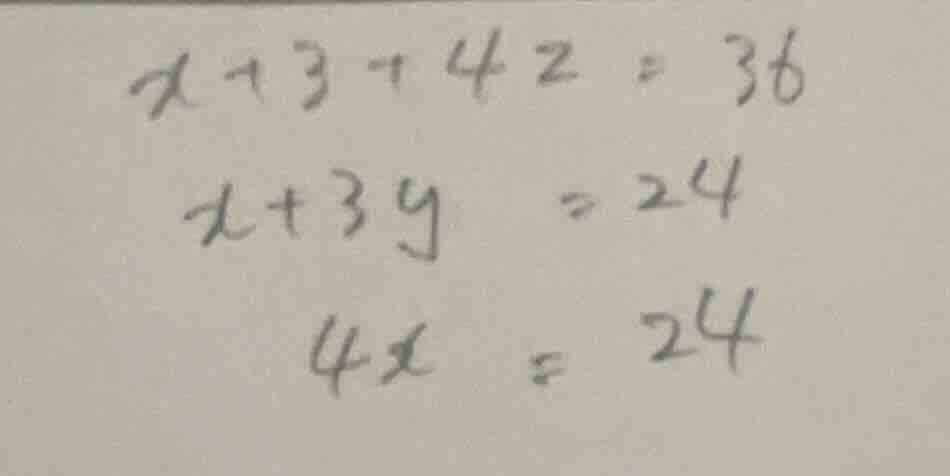 x + 3 + 4z = 36
x + 3y = 24
4x = 24